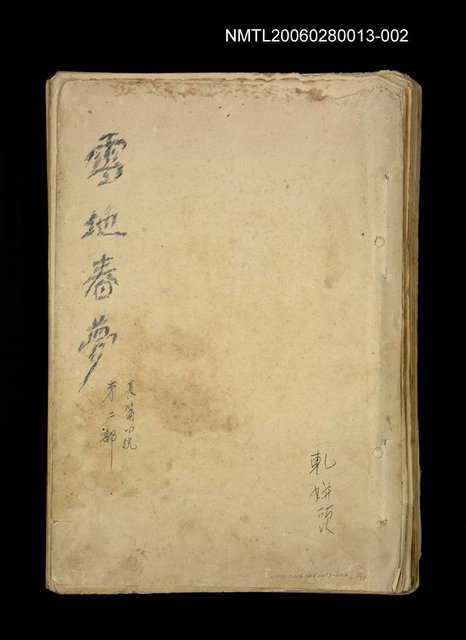 NMTL20060280013-002
雪地春夢
長篇小說
第二部
軋姘頭